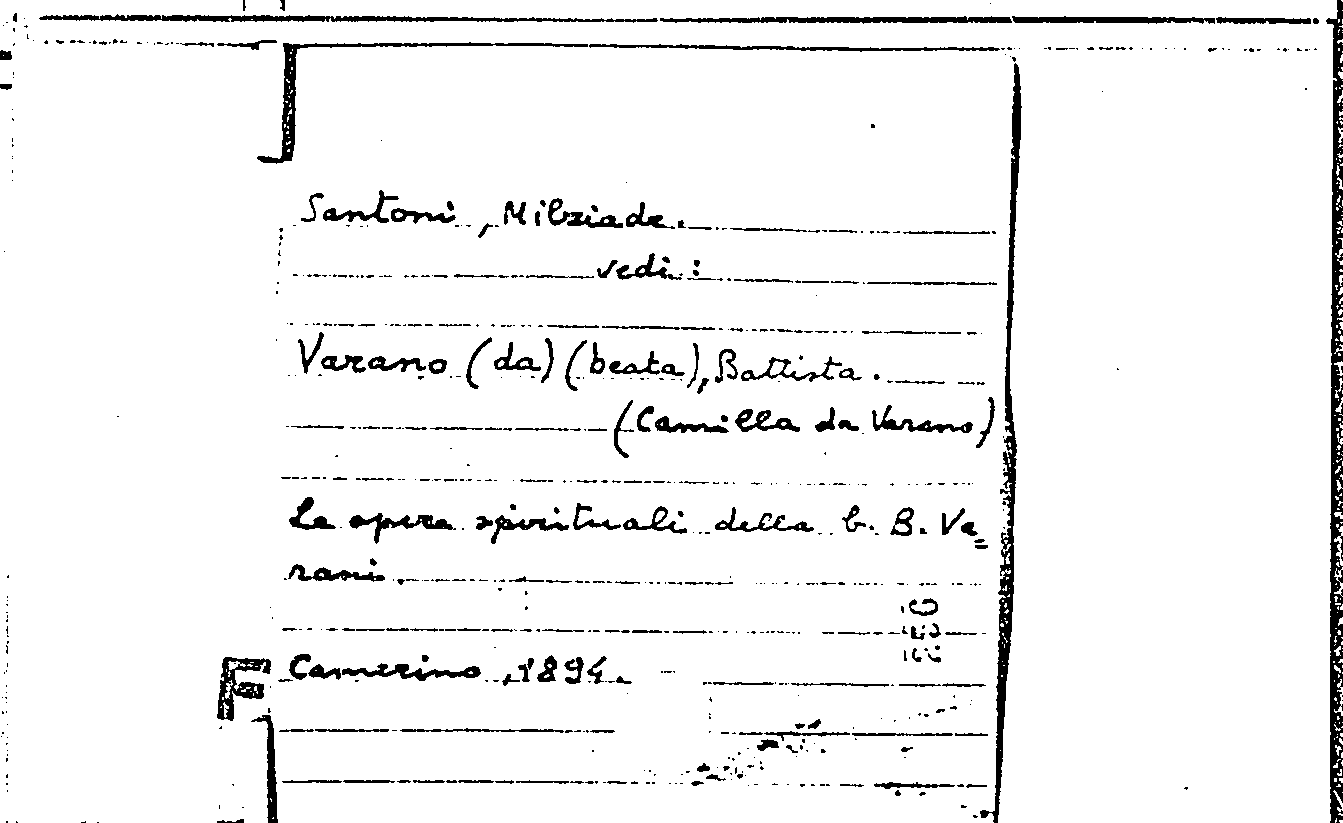 Santoni, Milziade.
vedi:
Varano (da) (beata), Battista.
(Camilla da Varano)
Le opere spirituali della b. B. Va=
rani.
Camerino, 1894.